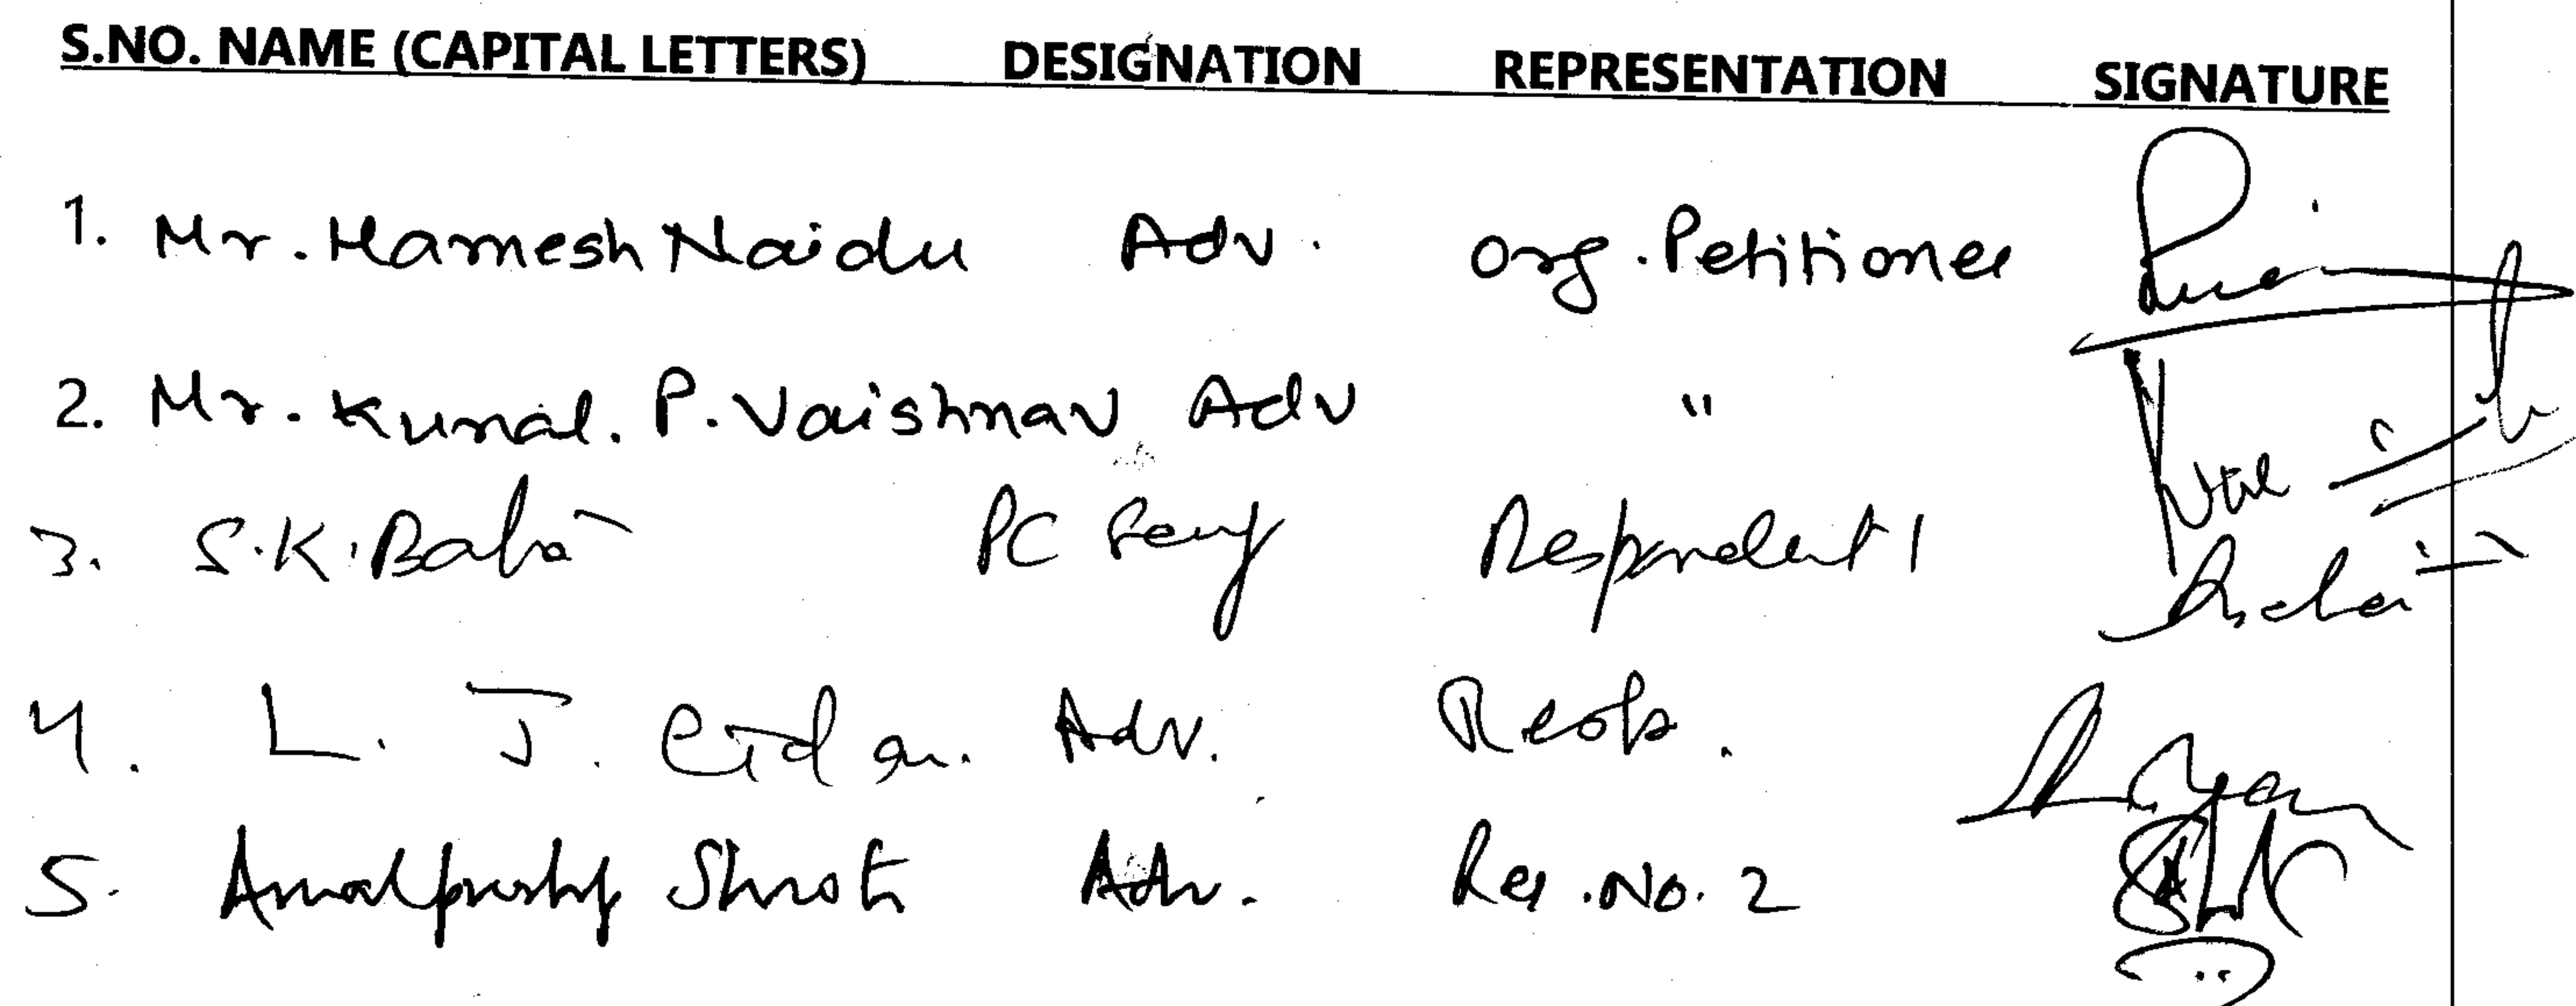 S.NO. NAME (CAPITAL LETTERS) DESIGNATION REPRESENTATION SIGNATURE
1. Mr. Hamesh Naidu Adv. Org. Petitioner
2. Mr. Kunal. P. Vaishnav Adv "
3. S.K. Baba PC Respondent 1
4. L. J. Adv. Resp.
5. Amalpushp Shroti Adv. Res. No. 2